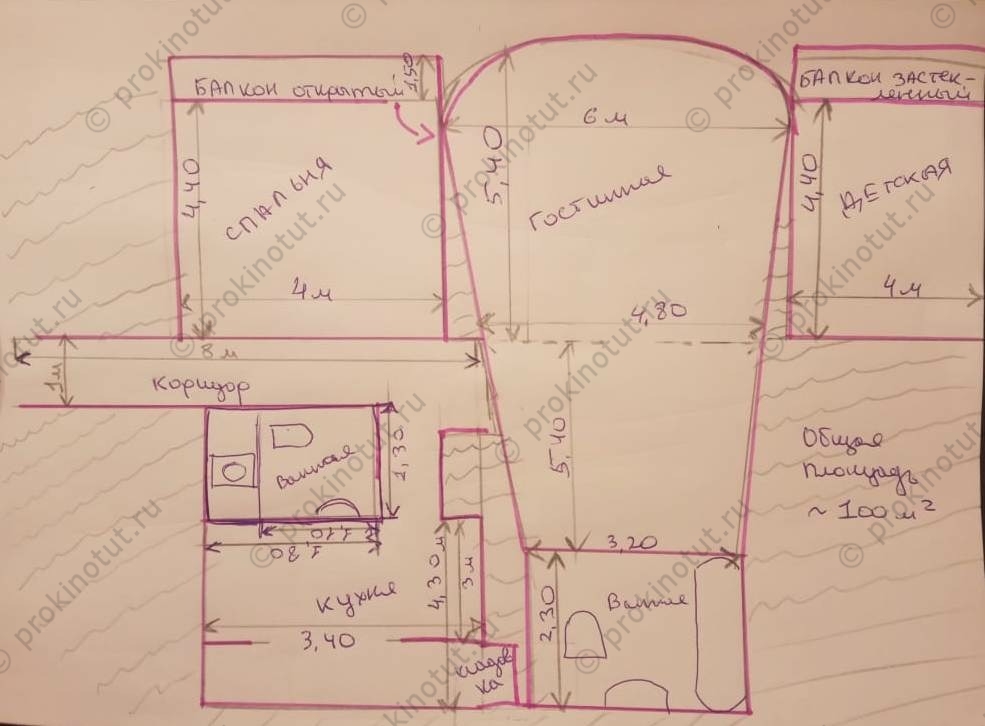 БАЛКОН ОТКРЫТЫЙ
1,50
БАЛКОН ЗАСТЕК-
ЛЕННЫЙ
6 м
4,40
СПАЛЬНЯ
5,40
Гостинная
4,40
ДЕТСКАЯ
4 м
4,80
4 м
8 м
1 м
Коридор
Ванная
1,30
1,10
1,80
5,40
Общая
площадь
~ 100 м²
3,20
Кухня
4,30 м
3 м
3,40
2,30
Ванная
кладов
ка
© prokinotut.ru